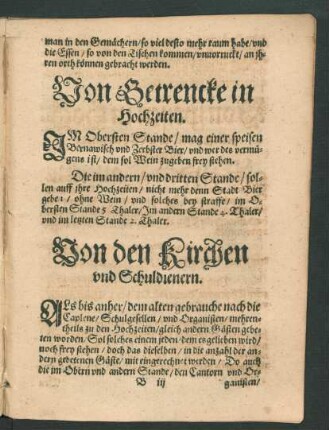 man in den Gemächern / so viel desto mehr raum habe / vnd
die Essen / so von den Tischen kommen / vnuorruckt / an jh-
ren orth können gebracht werden.
Von Getrencke in
Hochzeiten.
IM Obersten Stande / mag einer speisen
Bernawisch vnd Zerbster Bier / vnd wer des vermü-
gens ist / dem sol Wein zugeben frey stehen.
Die im andern / vnd dritten Stande / sol-
len auff ihre Hochzeiten / nicht mehr denn Stadt Bier
gebẽ / ohne Wein / vnd solches bey straffe / im O-
bersten Stande 5 Thaler / Im andern Stande 4. Thaler /
vnd im letzten Stande 2. Thaler.
Von den Kirchen
vnd Schuldienern.
ALs bis anher / dem alten gebrauche nach die
Caplene / Schulgesellen / vnd Organisten / mehren-
theils zu den Hochzeiten / gleich andern Gästen gebe-
ten worden. Sol solches einem jeden dem es geliebn wird /
noch frey stehen / doch das dieselben / in die anzahl der an-
dern gebetenen Gäste / mit eingerechnet werden / Do auch
die im Obern vnd andern Stande / den Cantorn vnd Or-
B iij
ganisten /